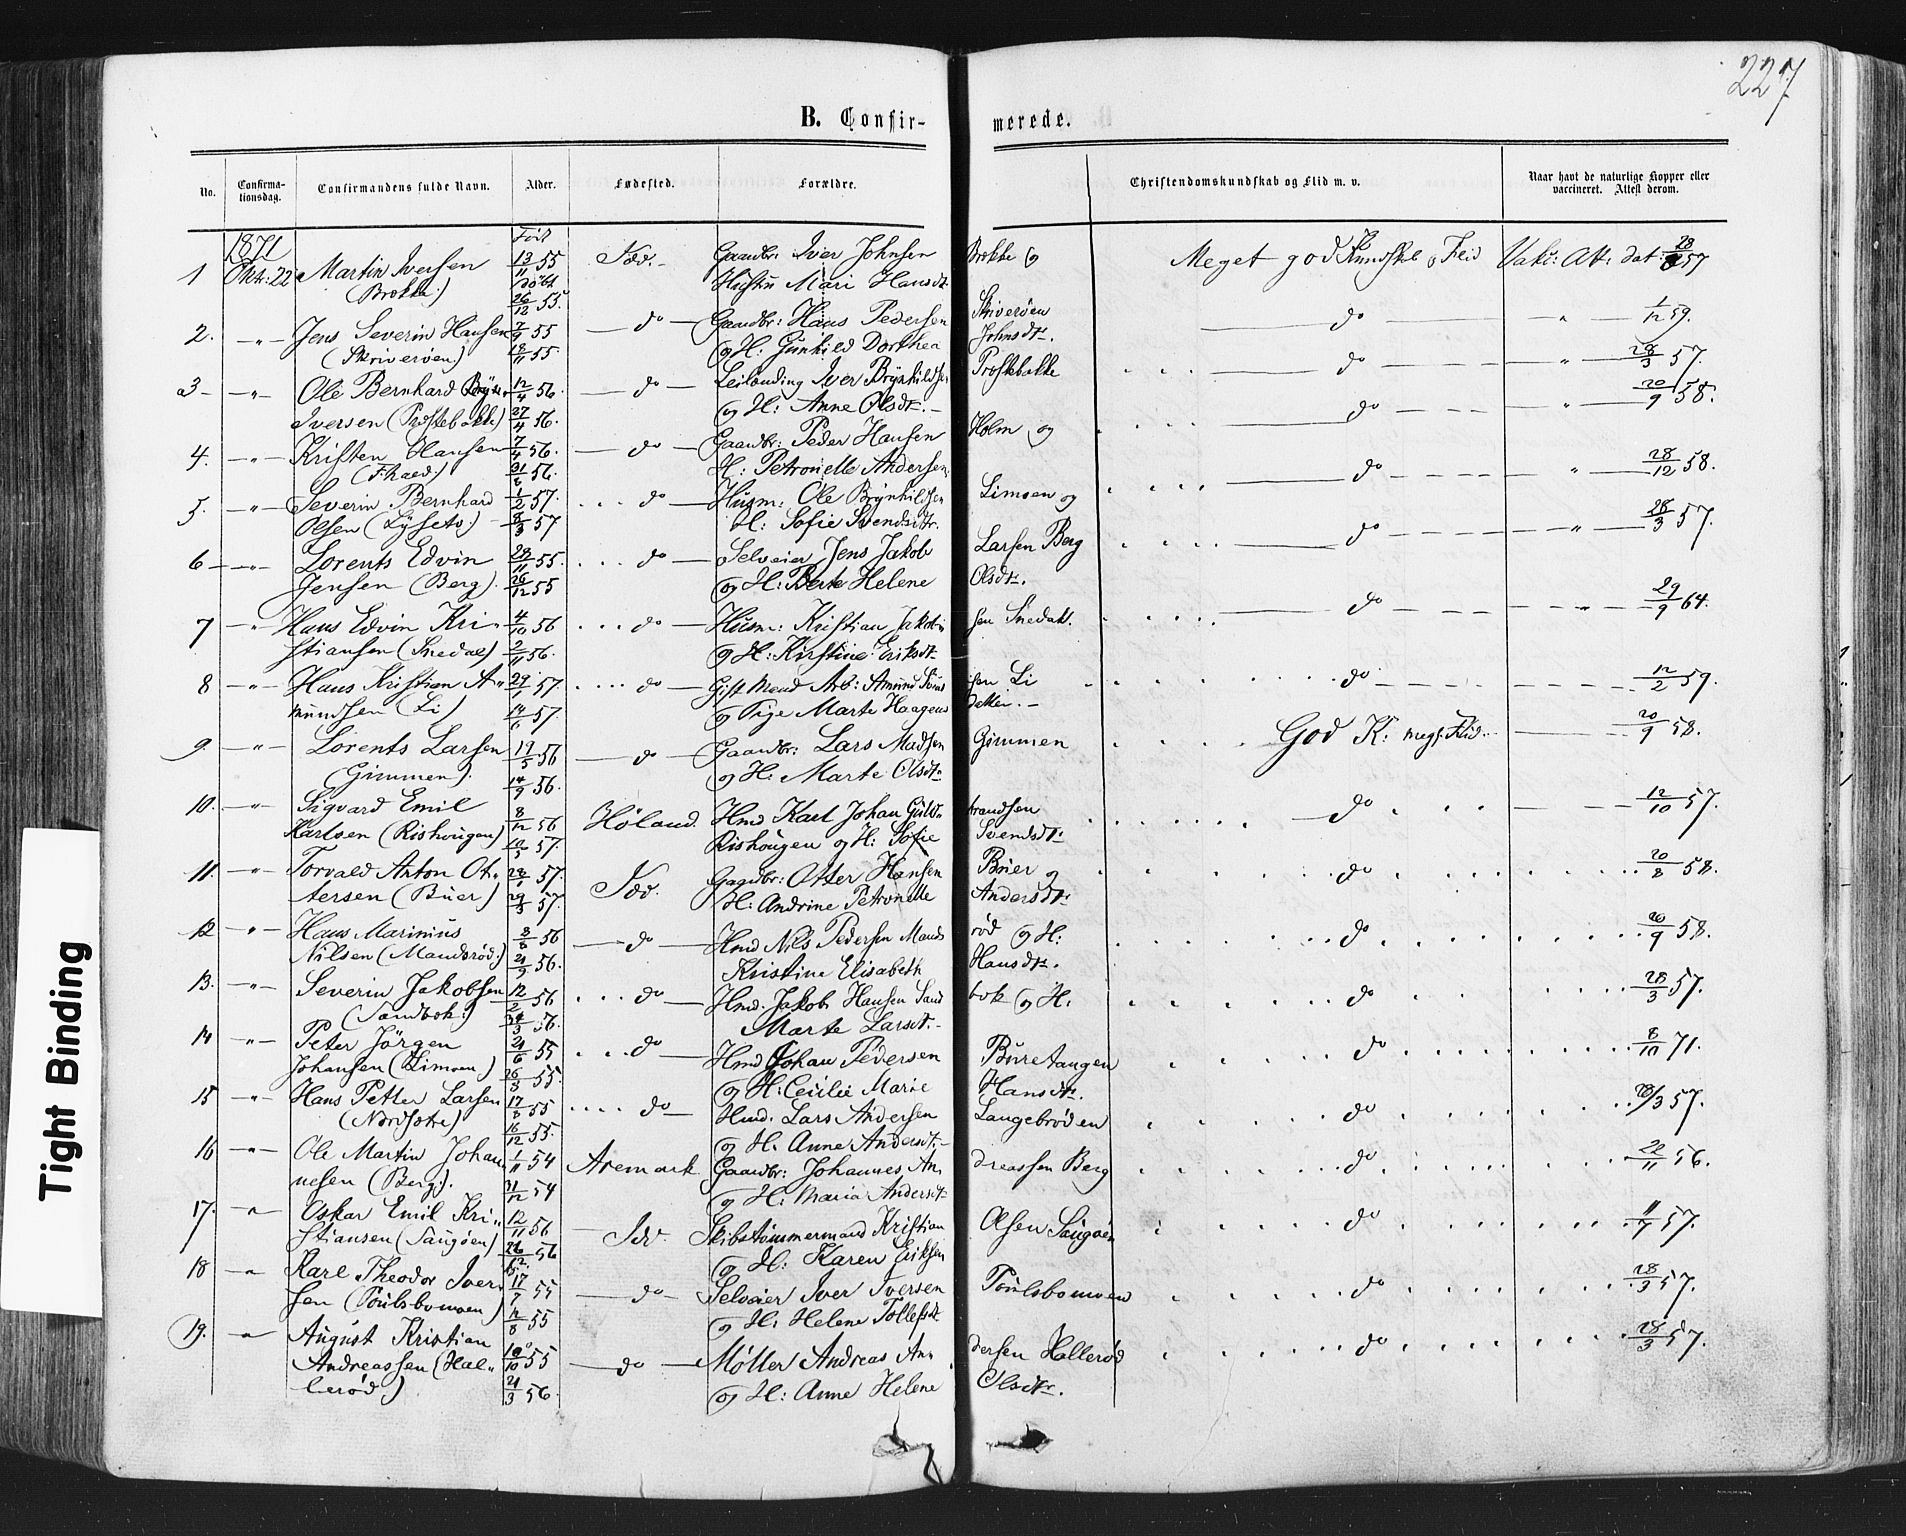 227
B. Confir-merede.
No. Confirma-tionsdag. Confirmandens fulde Navn. Alder. Fødested. Forældre. Christendomskundskab og Flid m. v. Naar havt de naturlige Kopper eller vaccineret. Attest derom.
1871 Født
1 Okt: 22 Martin Iversen 13/11 55 Idd. Gaardbr: Iver Johnsen Brekke og Meget god Kundsk. & Flid Vakc: Att: dat: 28/ 57
døbt
Hustru Mari Hansdt.
26/12 55.
2. -"- Jens Severin Hansen 7/9 55 do Gaardbr: Hans Pedersen do " 1/12 59.
(Skriverøen) 18/11 55. og H: Gunhild Dorthea Johnsdtr.
3 -"- Ole Bernhard 12/4 56. do Leilending Iver Brynhildsen do " 28/3 57.
Iversen 27/4 56. og H: Anne Olsdt. do " 20/9 58.
4. -"- Kristen Hansen 7/4 56. do Gaardbr: Peder Hansen Holm og
56. H: Petronelle Andersen do " 28/12 58.
5. -"- Severin Bernhard 1/2 57. do Husm: Ole Brynhildsen Limoen og
Olsen 8/3 57 H: Sofie Svendsdtr. do " 28/3 57.
6 -"- Lorents Edvin 28/11 55. do Selveier Jens Jakob Larsen Berg
Jensen (Berg) 26/12 55 og H: Berte Helene Olsdtr. do " 29/9 64.
7 -" Hans Edvin Kri- 4/10 56 do Husm: Kristian Jakob-sen
stiansen (Snedal) 2/11 56. og H: Kirstine Eriksdt.
8 -"- Hans Kristian A- 29/ 57. do Gift Mand Arb: Amund do 12/2 59.
mundsen (Li) 14/6 57. og Pige Marte Haagens-datter.
9. -"- Lorents Larsen 19/5 56 do Gaardbr: Lars Madsen Gimmen God K: meg: Flid 20/9 58.
(Gimmen) 14/9 56. og H: Marte Olsdt.
10. -"- Sigvard Emil 8/12 56 Høland. Hmd Karl Johan Guld-brandsen do 12/10 57.
Karlsen (Rishougen) 57. Rishougen og H: Sofie Svendsdtr.
11. -"- Torvald Anton Ot- 28/1 57. Idd. Gaardbr: Otter Hansen Buer og do 20/8 58.
tersen (Buer) 29/3 57. H: Andrine Petronelle Andersdtr.
12 -"- Hans Marinius 56 do Hmd Nils Pedersen Mands-rød og H: do 20/9 58.
Nilsen (Mandsrød) 21/9 56. Kristine Elisabeth Hansdtr.
13. -"- Severin Jakobsen 12/2 56 do Hmd. Jakob Hansen Sand-bok og H. do 28/3 57.
(Sandbok) 56. Marte Larsdt.
14 -"- Peter Jörgen 55 do Hmd Johan Pedersen Buretangen do 8/10 71.
Johansen (Limoen) 55. og H: Cecilie Marie Hansdtr.
15 -"- Hans Petter Larsen 17/8 55 do Hmd. Lars Andersen Langebrøden do 28/3 57.
16/12 55. og H: Anne Andersdt.
16 -"- Ole Martin Johan- 1/11 54 Aremark Gaardbr: Johannes An-dreassen Berg do 22/11 56.
nesen (Berg). 31/12 54 og H: Maria Andersdt.
17. " Oskar Emil Kri- 12/11 56 Idd. Skibstømmermand Kristian Olsen Saugøen do 11/7 57.
stiansen (Saugøen) 26/12 56 og H: Karen Eriksen
18 " Karl Theodor Iver- 17/7 55 do Selveier Iver Iversen Poulsbomoen do 28/3 57.
sen (Poulsbomoen) 55 og H: Helene Tollefsdt
19. " August Kristian 10/10 55 do Møller Andreas An-dersen Hallerød do 28/3 57.
Andreassen (Hal- 21/3 56. og H: Anne Helene Olsdtr.
lerød)
Tight Binding